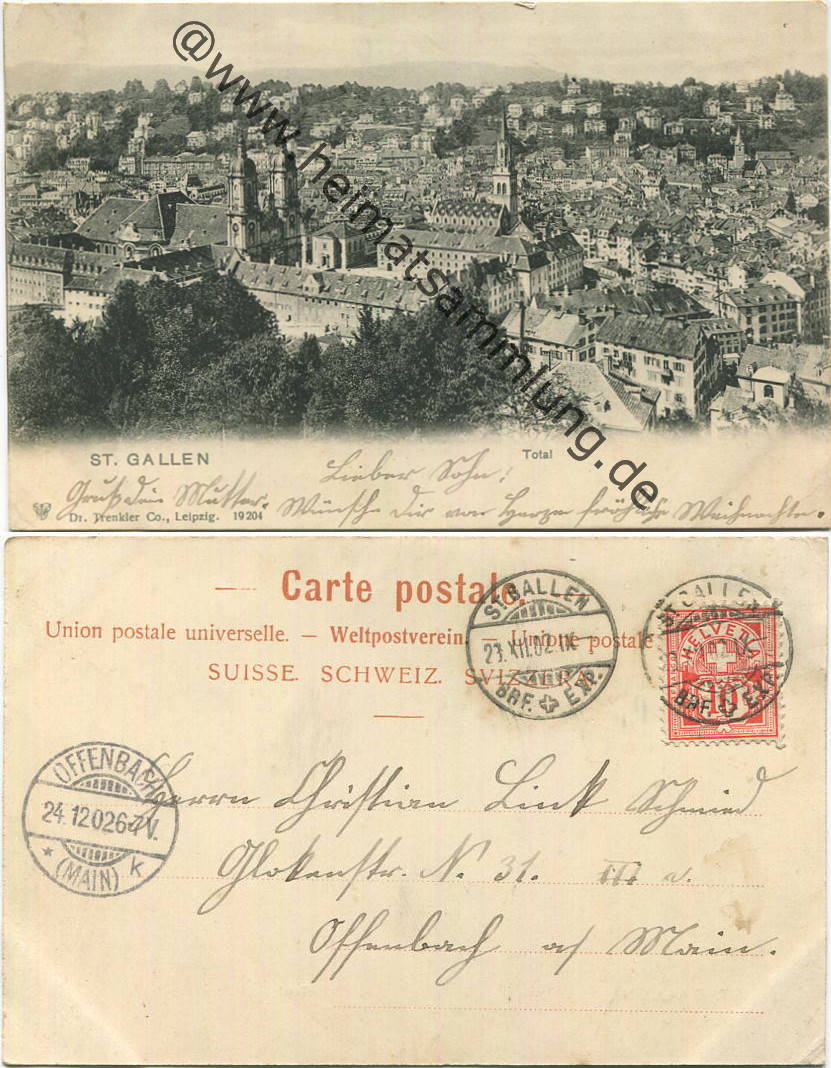 @www.heimatsammlung.de
ST. GALLEN
Total
Lieber Sohn!
Gruß dein Mutter. Wünsche Dir von Herzen fröhliche Weihnachten.
Dr. Trenkler Co., Leipzig. 19204
Carte postale.
Union postale universelle. — Weltpostverein. — Unione postale
SUISSE. SCHWEIZ. SVIZZERA.
ST. GALLEN
23.XII.02.IX
BRF. EXP.
ST. GALLEN
BRF. EXP.
HELVETIA
10
OFFENBACH
24.12.02 6-7V.
* (MAIN) k
Herrn Christian Link Schmied
Glokenstr. N. 31. III
Offenbach a/ Main.